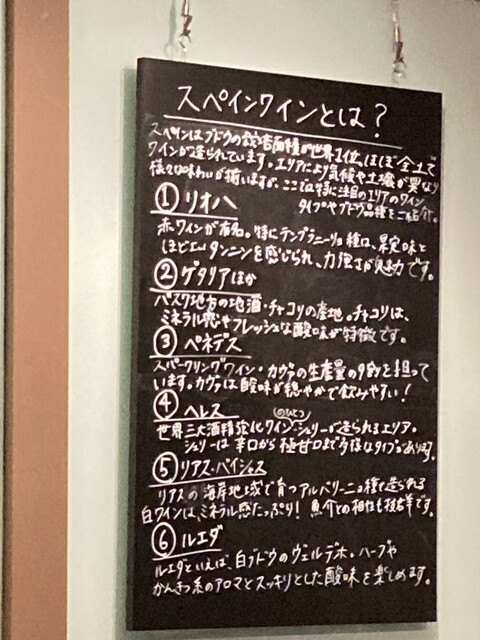 スペインワインとは?
スペインはブドウの栽培面積が世界1位。ほぼ全土で
ワインが造られています。エリアにより気候や土壌が異なり
様々な味わいが揃いますが、ここでは特に注目のエリアのワイン、
タイプやブドウ品種をご紹介。
① リオハ
赤ワインが有名。特にテンプラニーリョ種は、果実味と
ほどよいタンニンを感じられ、力強さが魅力です。
② ゲタリアほか
バスク地方の地酒・チャコリの産地。チャコリは、
ミネラル感やフレッシュな酸味が特徴です。
③ ペネデス
スパークリングワイン・カヴァの生産量の9割を担って
います。カヴァは酸味が穏やかで飲みやすい!
④ ヘレス
世界三大酒精強化ワイン(のひとつ)・シェリーが造られるエリア。
シェリーは辛口から極甘口まで多様なタイプがあります。
⑤ リアス・バイシャス
リアスの海岸地域で育つアルバリーニョ種で造られる
白ワインは、ミネラル感たっぷり! 魚介との相性も抜群です。
⑥ ルエダ
ルエダといえば、白ブドウのヴェルデホ。ハーブや
かんきつ系のアロマとスッキリとした酸味を楽しめます。